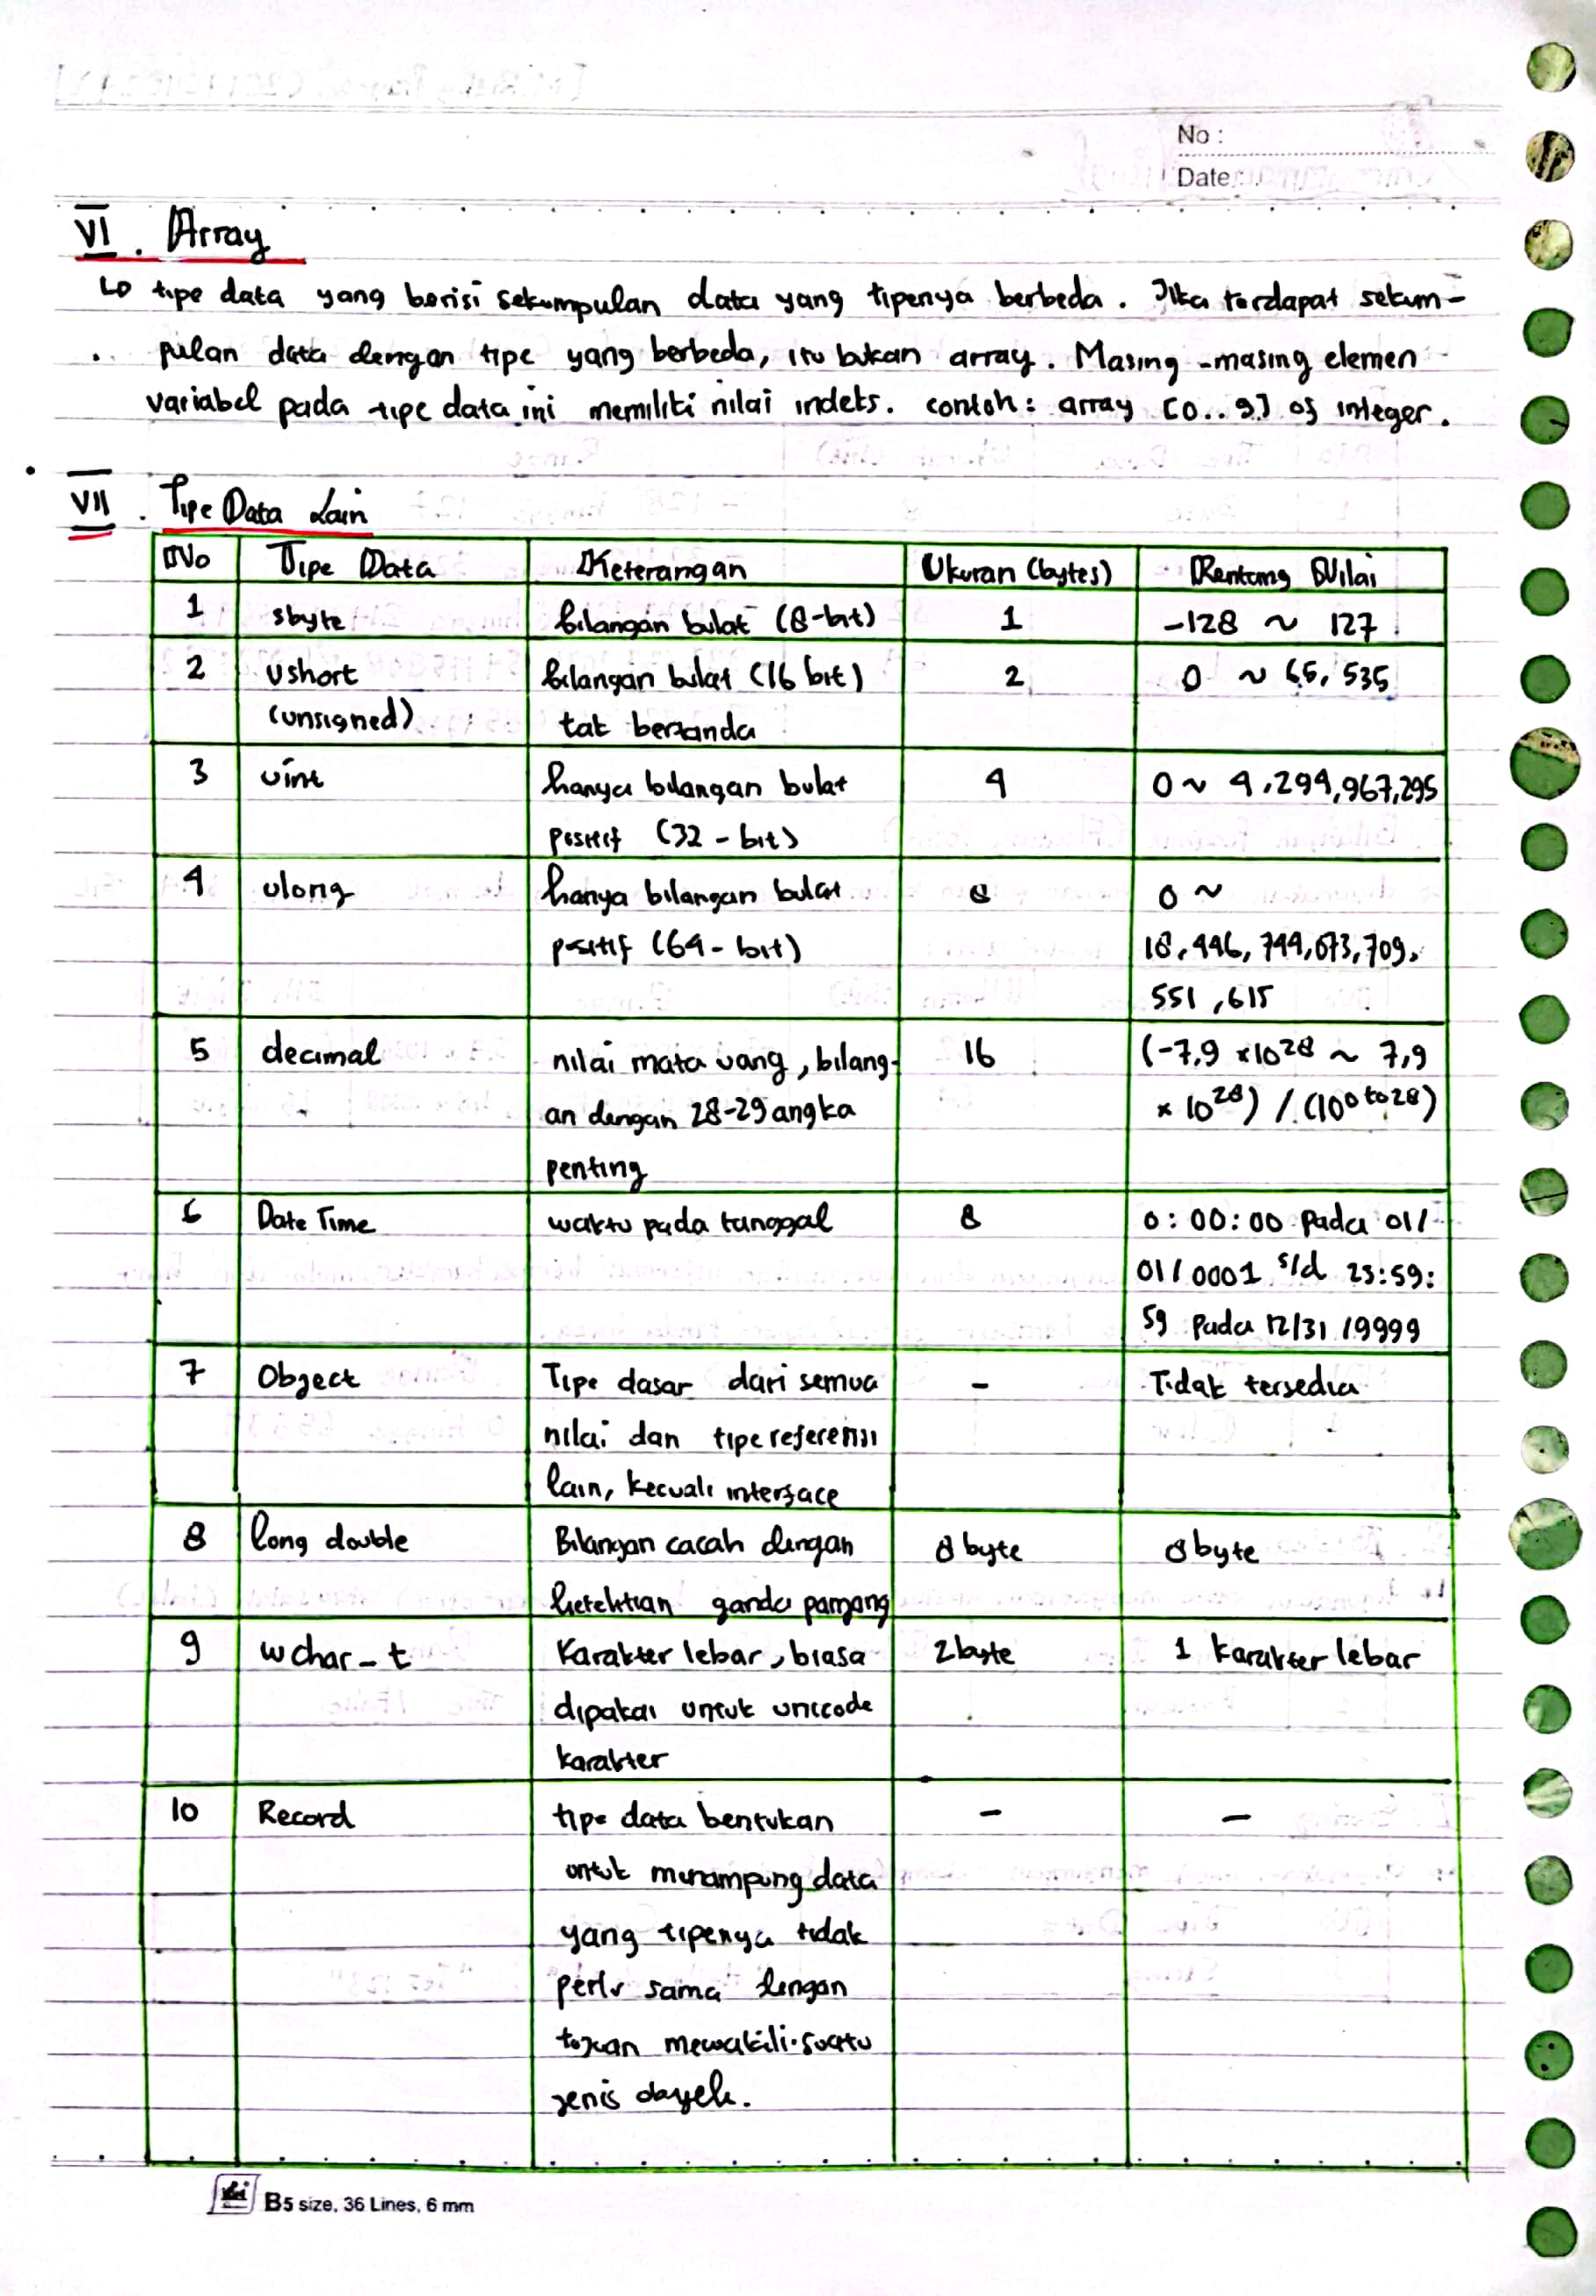 No :
Date :
VI. Array
↳ tipe data yang berisi sekumpulan data yang tipenya berbeda. Jika terdapat sekum-
pulan data dengan tipe yang berbeda, itu bukan array. Masing-masing elemen
variabel pada tipe data ini memiliki nilai indeks. contoh: array [0..9] of integer.
VII. Tipe Data Lain
No Tipe Data Keterangan Ukuran (bytes) Rentang Nilai
1 sbyte bilangan bulat (8-bit) 1 -128 ~ 127
2 Ushort bilangan bulat (16 bit) 2 0 ~ 65,535
(unsigned) tak bertanda
3 uint hanya bilangan bulat 4 0 ~ 4,294,967,295
positif (32-bit)
4 ulong hanya bilangan bulat 8 0 ~
positif (64-bit) 18,446,744,073,709,
551,615
5 decimal nilai mata uang, bilang- 16 (-7,9 x10^28 ~ 7,9
an dengan 28-29 angka x 10^28) / (10^0 to 28)
penting
6 Date Time waktu pada tanggal 8 0:00:00 pada 01/
01/0001 s/d 23:59:
59 pada 12/31/9999
7 Object Tipe dasar dari semua - Tidak tersedia
nilai dan tipe referensi
lain, kecuali interface
8 long double Bilangan cacah dengan 8 byte 8 byte
ketelitian ganda panjang
9 wchar_t Karakter lebar, biasa 2 byte 1 karakter lebar
dipakai untuk unicode
karakter
10 Record tipe data bentukan - -
untuk menampung data
yang tipenya tidak
perlu sama dengan
tujuan mewakili suatu
jenis obyek.
B5 size, 36 Lines, 6 mm